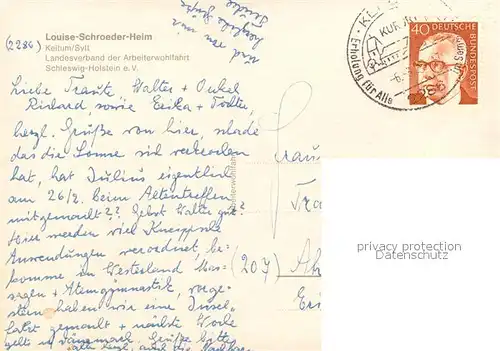 (2286)
Louise-Schroeder-Heim
Keitum/Sylt
Landesverband der Arbeiterwohlfahrt
Schleswig-Holstein e. V.
40 DEUTSCHE BUNDESPOST
KURORT
Erholung für Alle
Liebe Traute, Walter + Onkel
Richard, sowie Erika + Tochter,
herzl. Grüße von hier, schade
das die Sonne sich verkrochen
hat, hat Julius eigentlich
am 26/2. beim Altentreffen
mitgemacht?? Gehts Walter gut?
Hier werden viel Kneippsche
Anwendungen verordnet, be-
komme in Westerland Mas-
sagen + Atemgymnastik, vorge-
stern haben wir eine Insel-
fahrt gemacht + nächste Woche
geht n. Dänemark. Grüße bitte
auch die
Frau
Tra
(207) Ah
privacy protection
Datenschutz